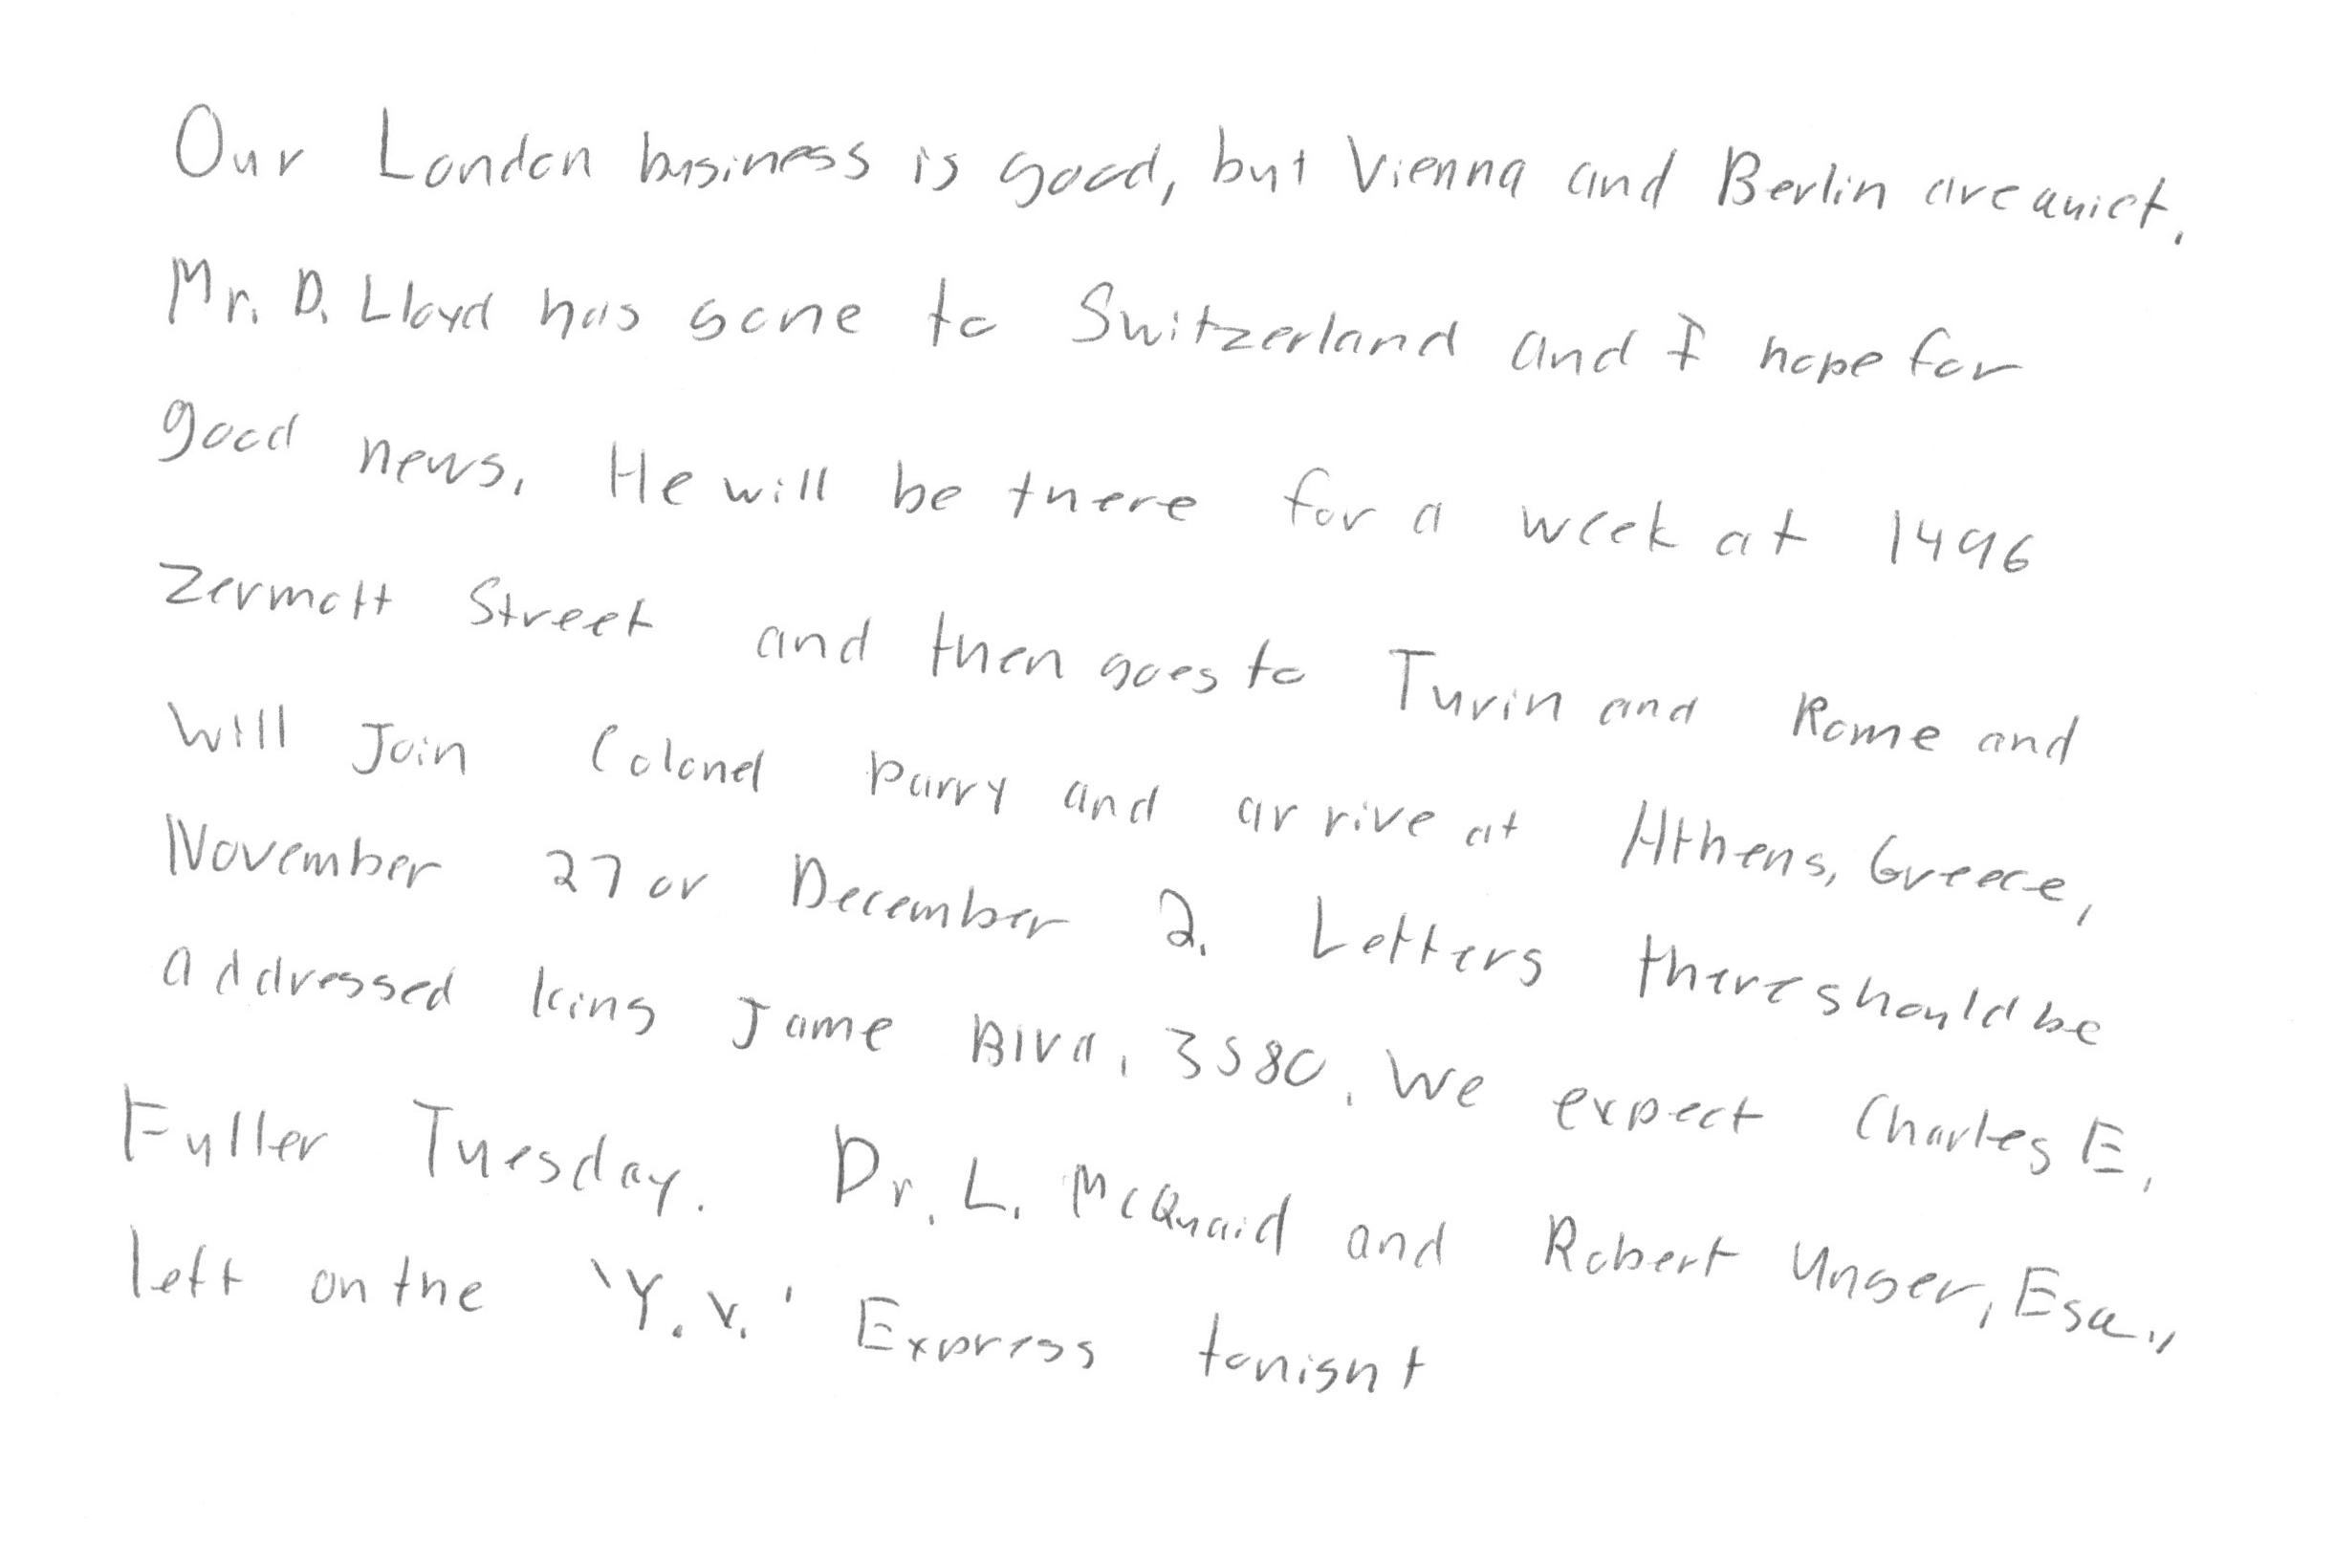 Our London business is good, but Vienna and Berlin are quiet.
Mr. D. Lloyd has gone to Switzerland and I hope for
good news. He will be there for a week at 1496
Zermott Street and then goes to Turin and Rome and
will Join Colonel Parry and arrive at Athens, Greece,
November 27 or December 2. Letters there should be
addressed King Jame Blvd, 3580. We expect Charles E.
Fuller Tuesday. Dr. L. McQuaid and Robert Unger, Esq.,
left on the 'Y.X.' Express tonight